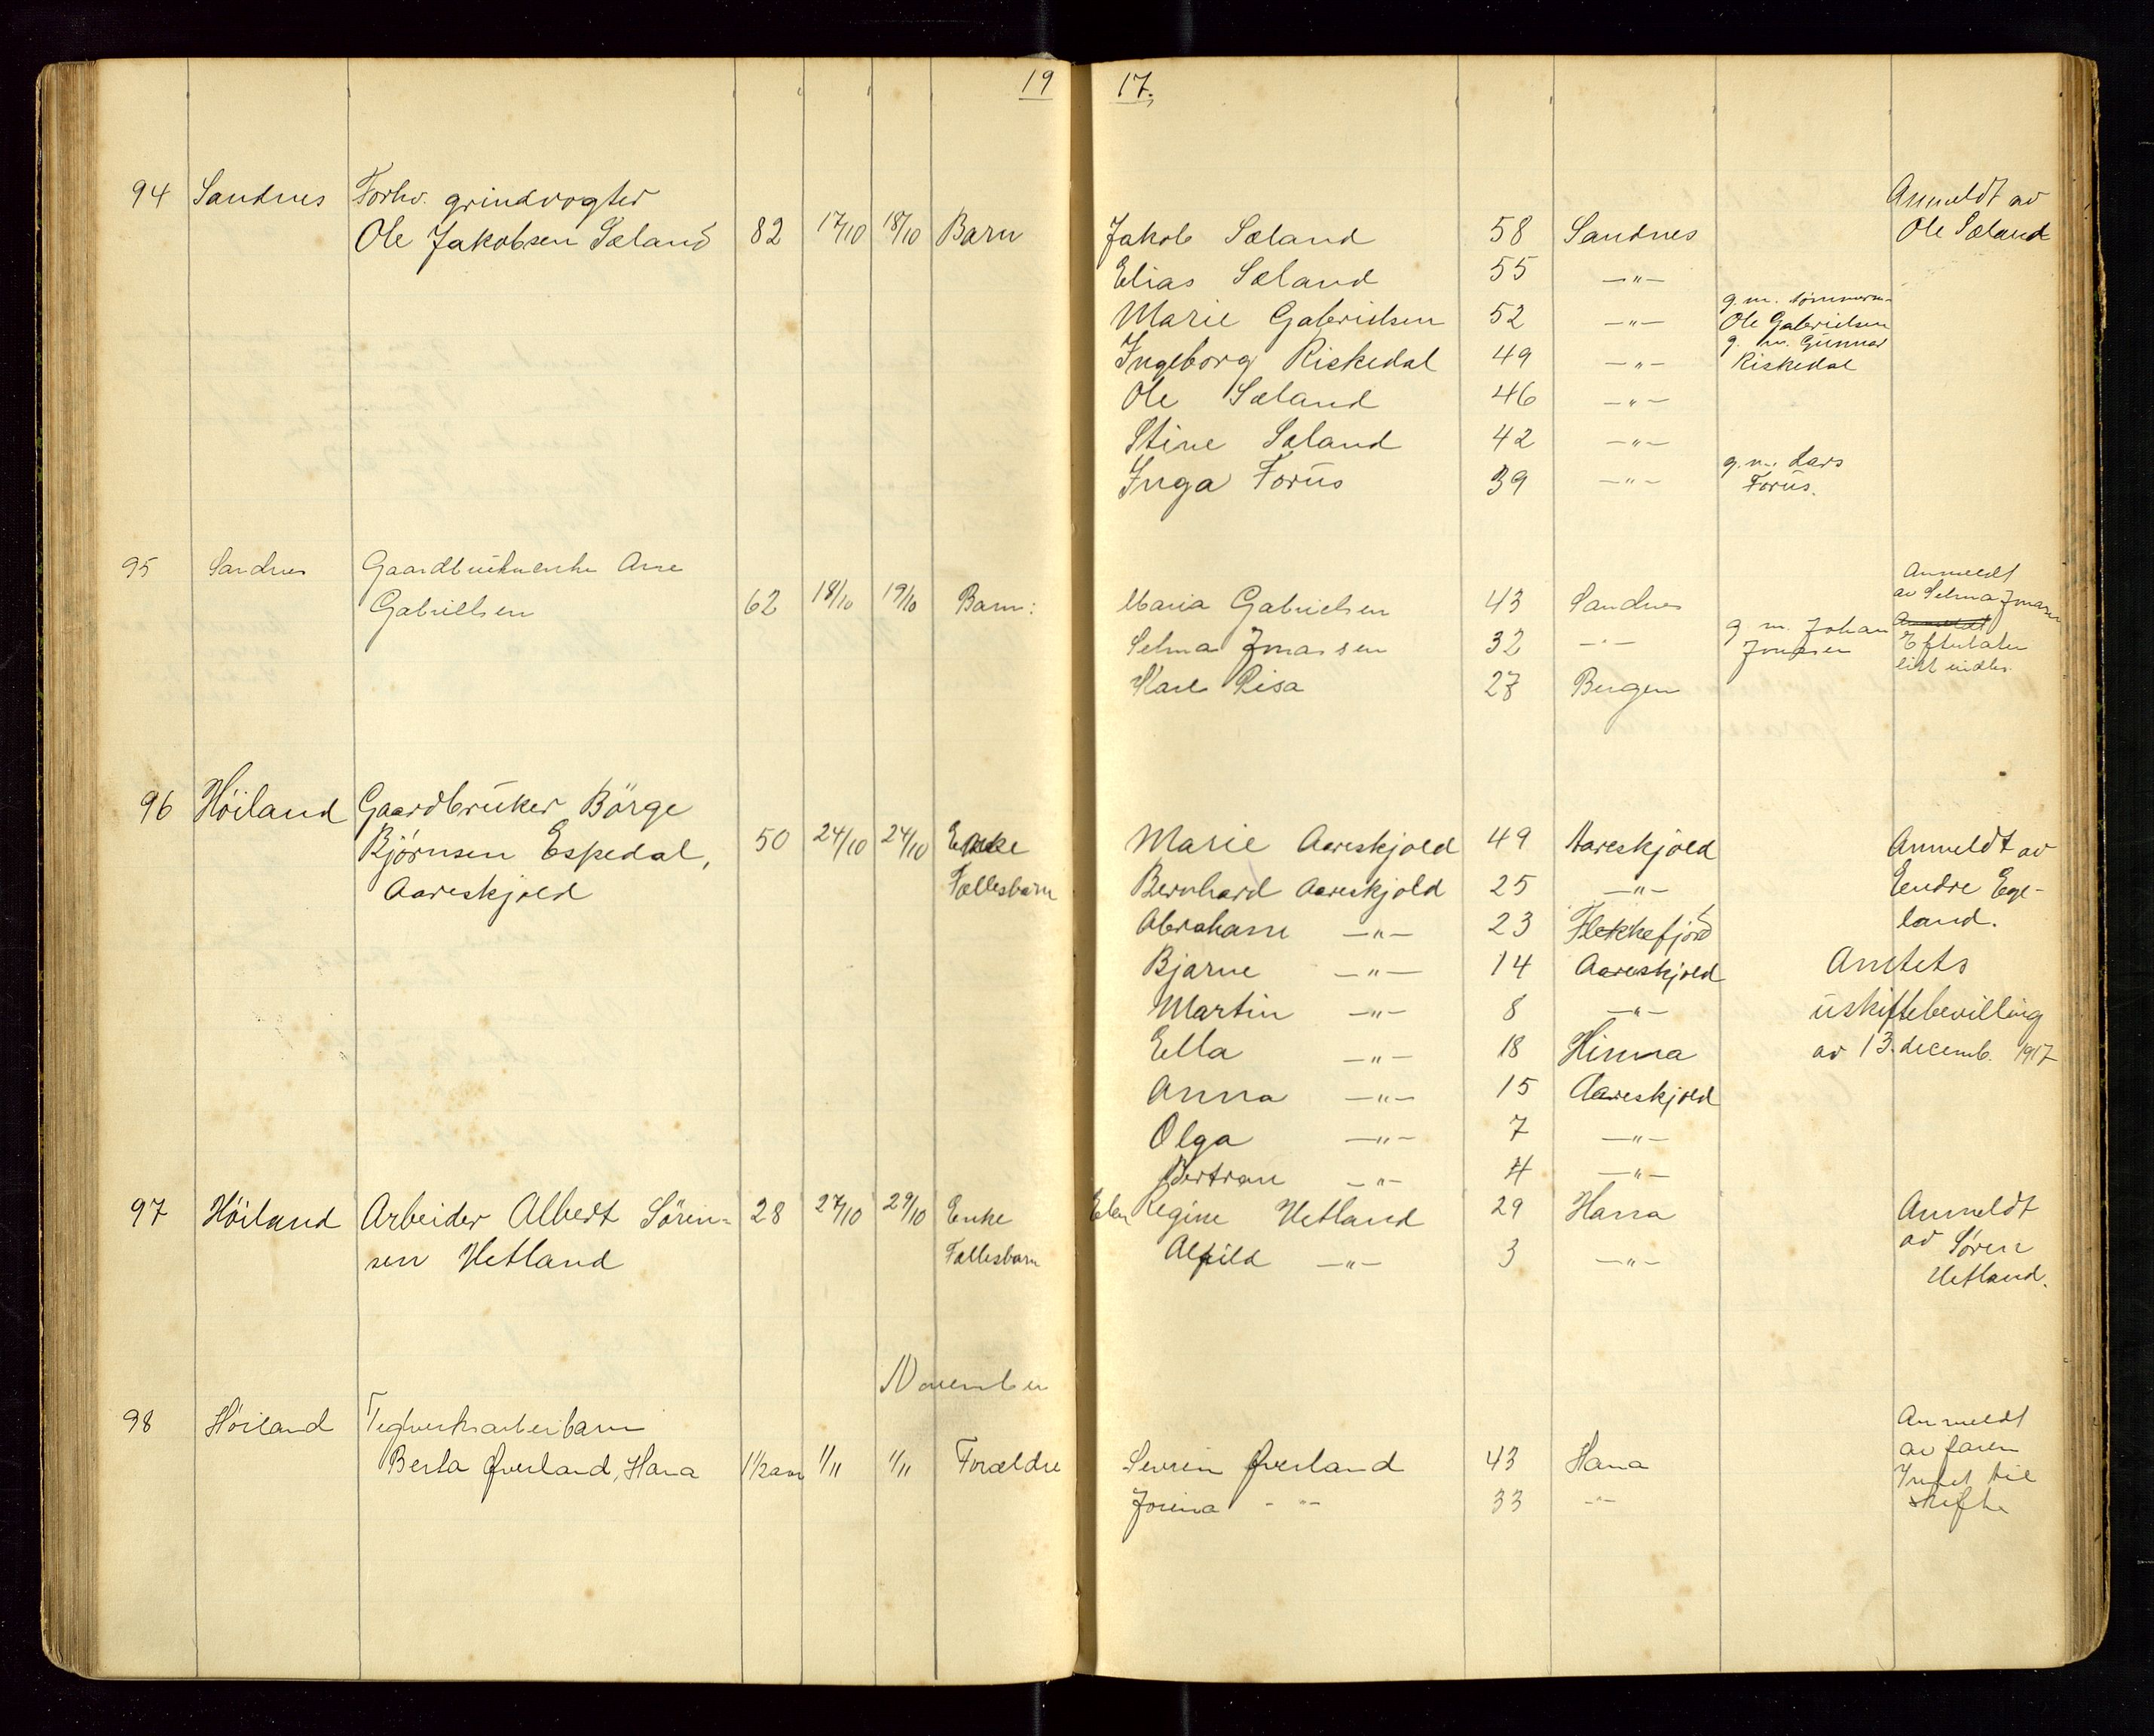 19 17.
94 Sandnes Forhv. grindvogter
Ole Jakobsen Sæland 82 17/10 18/10 Barn
Jakob Sæland 58 Sandnes
Elias Sæland 55 —"—
Marie Gabrielsen 52 —"— g. m. tømmerm. Ole Gabrielsen
Ingeborg Riskedal 49 —"— g. m. Gunnar Riskedal
Ole Sæland 46 —"—
Stine Sæland 42 —"—
Inga Forus 39 —"— g. m. Lars Forus.
Anmeldt av
Ole Sæland
95 Sandnes Gaardbrukerenke Ane
Gabrielsen 62 18/10 19/10 Barn:
Maria Gabrielsen 43 Sandnes
Selma Jonassen 32 —"— g m. Johan Jonasen
Karl Risa 27 Bergen
Anmeldt
av Selma Jonasen
Anmeldt
Efterlater
litt indbo.
96 Höiland Gaardbruker Börge
Bjørnsen Espedal, 50 24/10 24/10 Enke
Aareskjold Fællesbarn
Marie Aareskjold 49 Aareskjold
Bernhard Aareskjold 25 —"—
Abraham —"— 23 Flekkefjord
Bjarne —"— 14 Aareskjold
Martin —"— 8 —"—
Ella —"— 18 Hinna
Anna —"— 15 Aareskjold
Olga —"— 7 —"—
Bertran —"— 4 —"—
Anmeldt av
Eendre Ege-
land.
Amtets
uskiftebevilling
av 13. decemb. 1917
97 Höiland Arbeider Albert Sören-
sen Hetland 28 27/10 29/10 Enke
Fællesbarn
Elen Regine Hetland 29 Hana
Alfild —"— 3 —"—
Anmeldt
av Søren
Hetland.
November
98 Höiland Teglverksarbeibarn
Berta Øverland, Hana 1 1/2 aar 1/11 1/11 Forældre
Sevrin Øverland 43 Hana
Jorina —"— 33 —"—
Anmeldt
av faren
Intet til
skifte